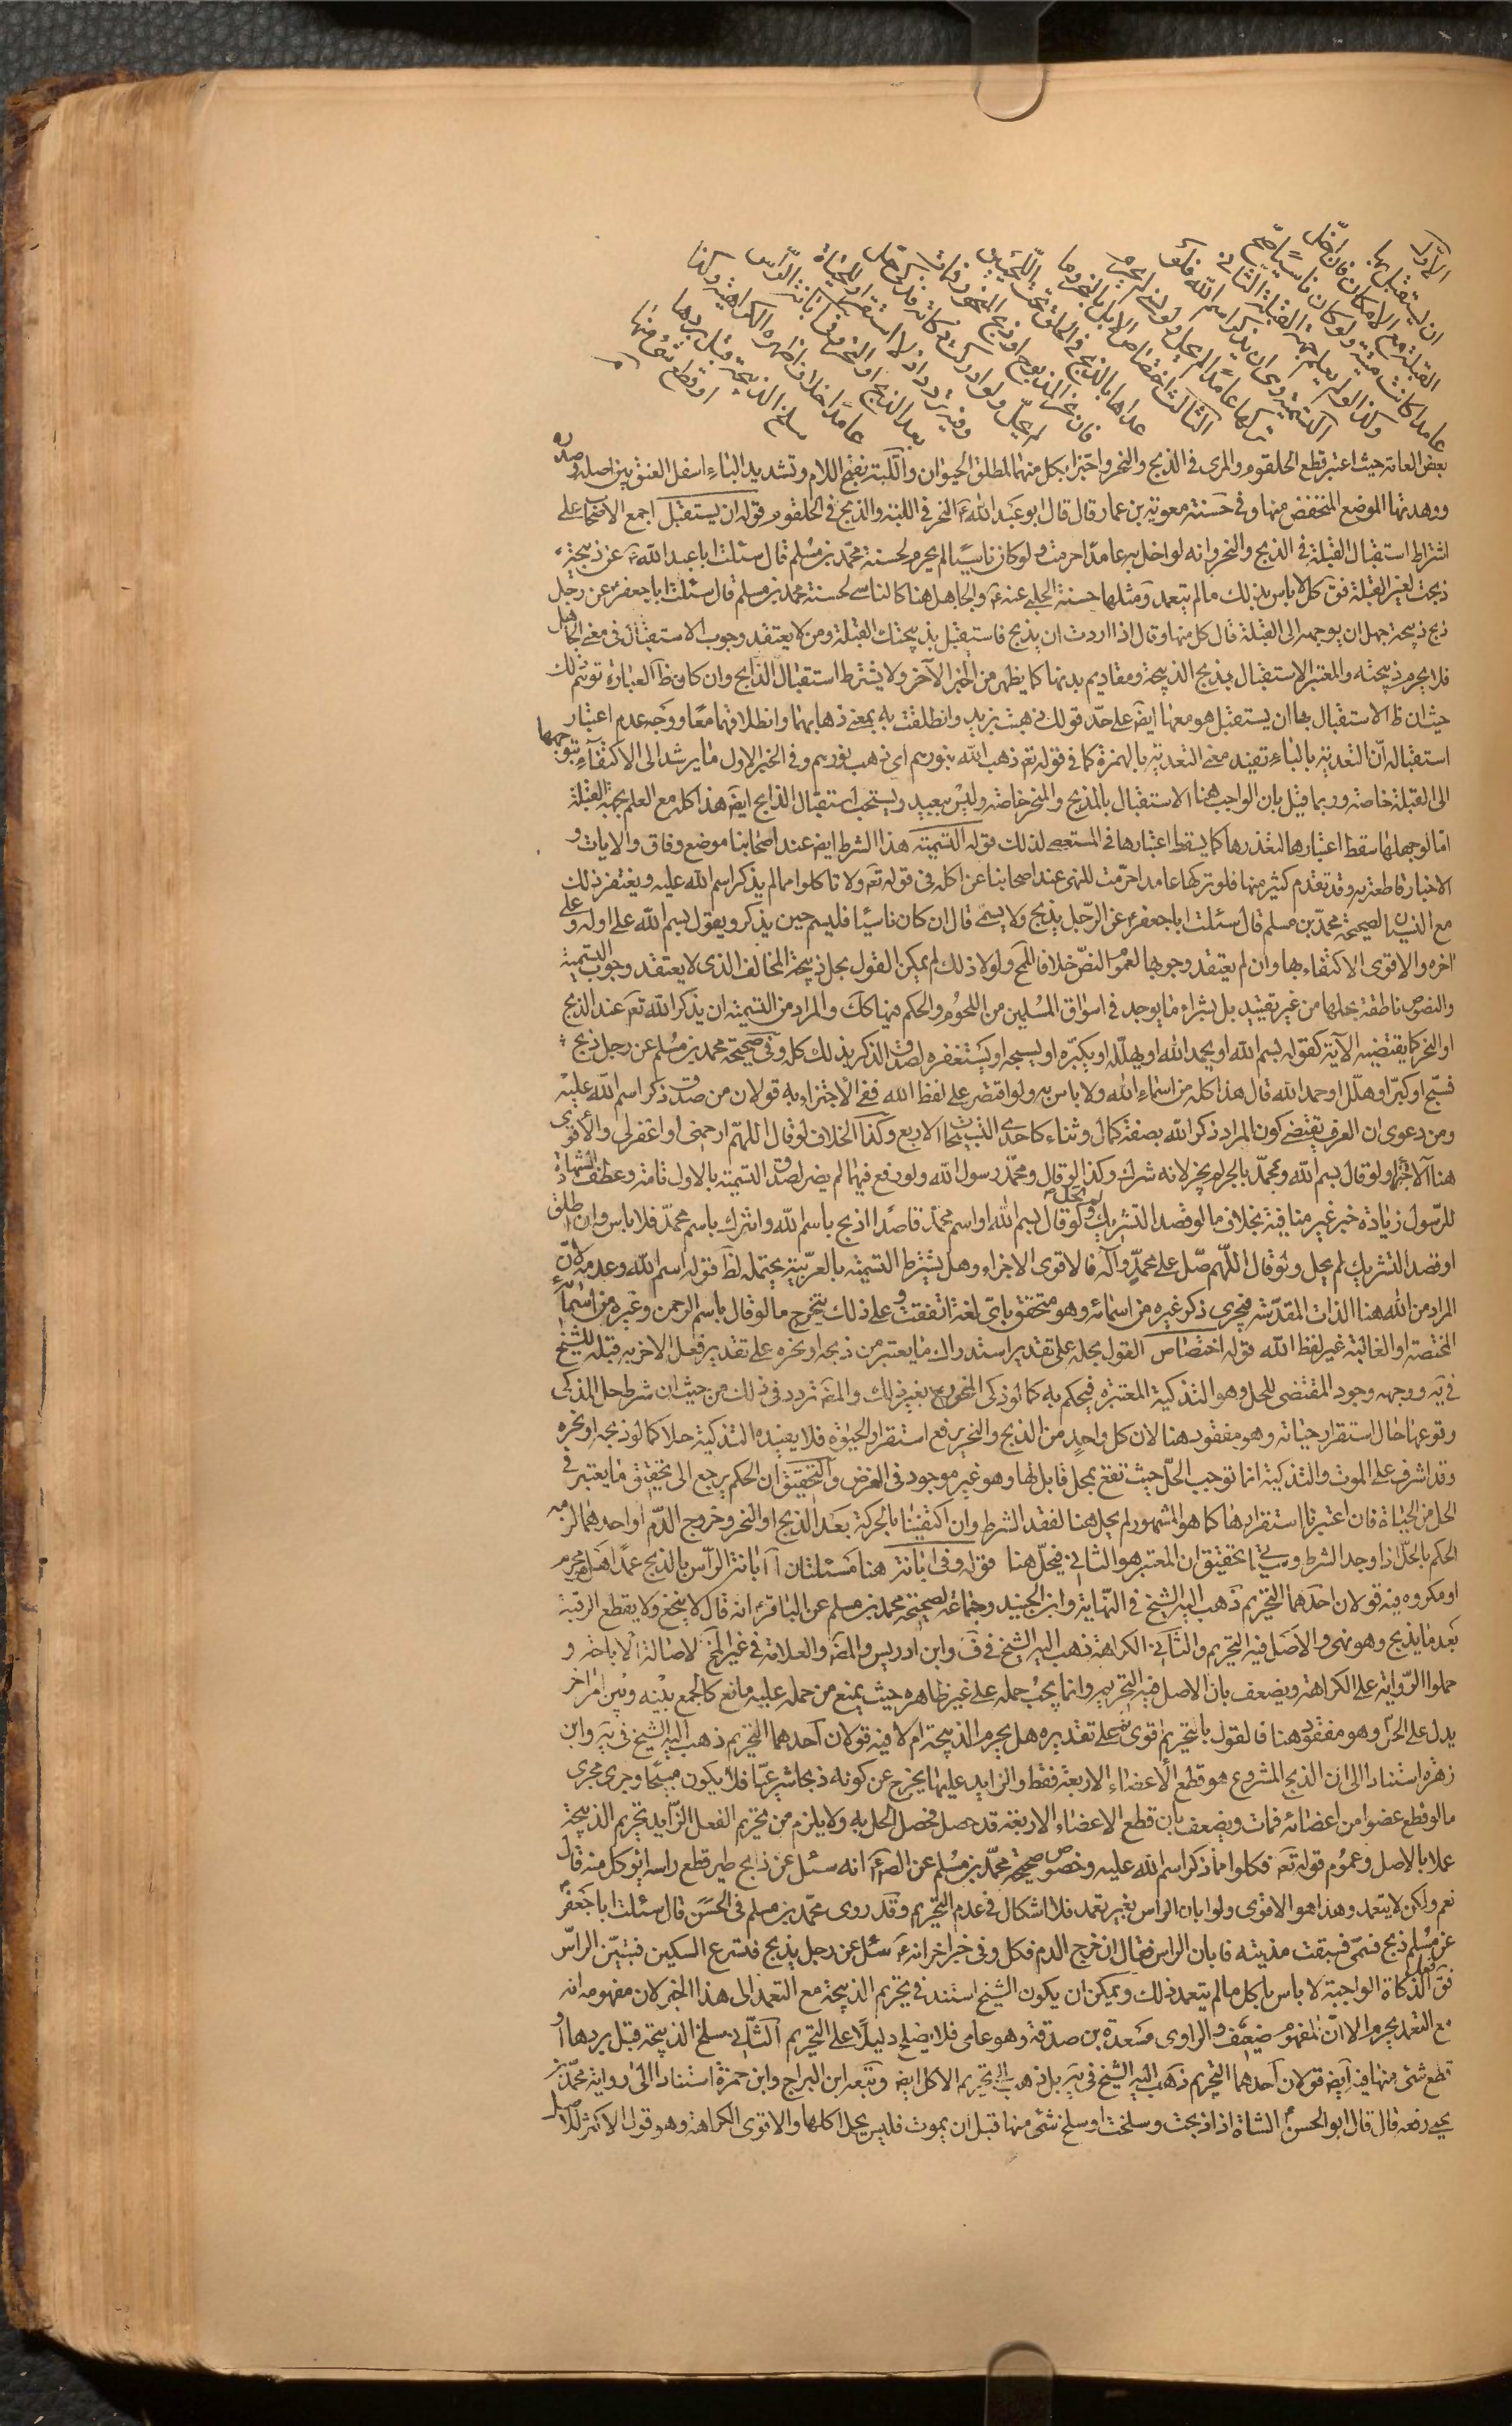 الاول
ان يستقبل بها
القبلة مع الامكان فان اخل
عامدا كانت ميتة ولو كان ناسيا صح
وكذا لو لم يعلم جهة القبلة الثاني
التسمية وهي ان يذكر اسم الله فلو
تركها عامدا لم يحل ولو نسي لم يحرم
الثالث اختصاص الابل بالنحر وما
عداها بالذبح في الحلق تحت اللحيين
فان نحر المذبوح او ذبح المنحور فمات
لم يحل ولو ادرك ذكاته فذكى حل
وفيه تردد اذ لا استقرار للحياة
بعد الذبح او النحر وفي ابانة الراس
عامدا خلاف اظهره الكراهية وكذا
سلخ الذبيحة قبل بردها
او قطع شئ منها
بعض العامة حيث اعتبر قطع الحلقوم والمرى فى الذبح والنحر واجتزا بكل منهما لمطلق الحيوان واللبة بفتح اللام وتشديد الباء اسفل العنق بين اصله وصدره
ووهدتها الموضع المنخفض منها وفى حسنة معوية بن عمار قال قال ابو عبد الله ع النحر فى اللبة والذبح فى الحلقوم قوله ان يستقبل اجمع الاصحاب على
اشتراط استقبال القبلة فى الذبح والنحر وانه لو اخل به عامدا حرمت ولو كان ناسيا لم يحرم لحسنة محمد بن مسلم قال سئلت ابا عبد الله ع عن ذبيحة
ذبحت لغير القبلة فق كل لا باس بذلك ما لم يتعمد ومثلها حسنة الحلبى عنه ع والجاهل هنا كالناسى لحسنة محمد بن مسلم قال سئلت ابا جعفر ع عن رجل
ذبح ذبيحة جهل ان يوجهها الى القبلة قال كل منها وقال اذا اردت ان يذبح فاستقبل بذبيحتك القبلة ومن لا يعتقد وجوب الاستقبال فى معنى الجاهل
فلا يحرم ذبيحته والمعتبر الاستقبال بمذبح الذبيحة ومقاديم بدنها كما يظهر من الخبر الآخر ولا يشترط استقبال الذابح وان كان ظ العبارة توهم ذلك
حيث ان ظ الاستقبال بها ان يستقبل هو معها ايض على حد قولك ذهبت بزيد وانطلقت به بمعنى ذهابهما وانطلاقهما معا ووجه عدم اعتبار
استقباله ان التعدية بالباء تفيد معنى التعدية بالهمزة كما فى قوله تع ذهب الله بنورهم اى اذهب نورهم وفى الخبر الاول ما يرشد الى الاكتفاء بتوجهها
الى القبلة خاصة وربما قيل بان الواجب هنا الاستقبال بالمذبح والمنحر خاصة وليس ببعيد ويستحب استقبال الذابح ايض هذا كله مع العلم بجهة القبلة
اما لو جهلها سقط اعتبارها لتعذرها كما يسقط اعتبارها فى المستعصى لذلك قوله التسمية هذا الشرط ايض عند اصحابنا موضع وفاق والايات و
الاخبار قاطعة به وقد تقدم كثير منها فلو تركها عامدا حرمت للنهى عند اصحابنا عن اكله فى قوله تع ولا تاكلوا مما لم يذكر اسم الله عليه ويغتفر ذلك
مع النسيان لصحيحة محمد بن مسلم قال سئلت ابا جعفر ع عن الرجل يذبح ولا يسمى قال ان كان ناسيا فليسم حين يذكر ويقول بسم الله على اوله وعلى
اخره والاقوى الاكتفاء بها وان لم يعتقد وجوبها لعموم النص خلافا للمخ ولولا ذلك لم يمكن القول بحل ذبيحة المخالف الذى لا يعتقد وجوب التسمية
والنصوص ناطقة بحلها من غير تقييد بل بشراء ما يوجد فى اسواق المسلمين من اللحوم والحكم فيها كك والمراد من التسمية ان يذكر الله تع عند الذبح
او النحر كما يقتضيه الآية كقوله بسم الله او يحمد الله او يهلله او يكبره او يسبحه او يستغفره لصدق الذكر بذلك كله وفى صحيحة محمد بن مسلم عن رجل ذبح
فسبح او كبر او هلل او حمد الله قال هذا كله من اسماء الله ولا باس به ولو اقتصر على لفظ الله ففى الاجتزاء به قولان من صدق ذكر اسم الله عليه
ومن دعوى ان العرف يقتضى كون المراد ذكر الله بصفة كمال وثناء كاحدى التسبيحات الاربع وكذا الخلاف لو قال اللهم ارحمنى او اغفر لى والاقوى
هنا الاجزاء ولو قال بسم الله ومحمد بالجر لم يجز لانه شرك وكذا لو قال ومحمد رسول الله ولو رفع فيهما لم يضر لصدق التسمية بالاول تامة وعطف الشهادة
للرسول زيادة خير غير منافية بخلاف ما لو قصد التشريك ولو قال بسم الله او اسم محمد قاصدا اذبح باسم الله واتبرك باسم محمد فلا باس وان اطلق
او قصد التشريك لم يحل ولو قال اللهم صل على محمد وآله فالاقوى الاجزاء وهل يشترط التسمية بالعربية يحتمله لظ قوله اسم الله وعدمه لان
المراد من الله هنا الذات المقدسة فيجزى ذكر غيره من اسمائه وهو متحقق باى لغة اتفقت وعلى ذلك يتخرج ما لو قال باسم الرحمن وغيره من اسمائه
المختصة او الغالبة غير لفظ الله قوله اختصاص القول بحله على تقدير استدراك ما يعتبر من ذبحه او نحره على تقدير فعل الاخر به قبله للشيخ
فى ية ووجهه وجود المقتضى للحل وهو التذكية المعتبرة فيحكم به كما لو ذكى المجروح بغير ذلك والمص تردد فى ذلك من حيث ان شرط حل المذكى
وقوعها حال استقرار حياته وهو مفقود هنا لان كل واحد من الذبح والنحر يرفع استقرار الحيوة فلا يفيده التذكية حلا كما لو ذبحه او نحره
وقد اشرف على الموت والتذكية انما توجب الحل حيث تقع بمحل قابل لها وهو غير موجود فى الفرض والتحقيق ان الحكم يرجع الى تحقيق ما يعتبر فى
الحل من الحياة فان اعتبرنا استقرارها كما هو المشهور لم يحل هنا لفقد الشرط وان اكتفينا بالحركة بعد الذبح او النحر وخروج الدم او احدهما لزمه
الحكم بالحل اذا وجد الشرط وسياتى تحقيق ان المعتبر هو الثانى فيحل هنا قوله وفى ابانة هنا مسئلتان آ ابانة الراس بالذبح عمدا هل هو محرم
او مكروه فيه قولان احدهما التحريم ذهب اليه الشيخ فى النهاية وابن الجنيد وجماعة لصحيحة محمد بن مسلم عن الباقر ع انه قال لا ينخع ولا يقطع الرقبة
بعد ما يذبح وهو نهى والاصل فيه التحريم والثانى الكراهة ذهب اليه الشيخ فى ف وابن ادريس والمص والعلامة فى غير المخ لاصالة الاباحة و
حملوا الرواية على الكراهة ويضعف بان الاصل فيه التحريم وانما يجب حمله على غير ظاهره حيث يمنع من حمله عليه مانع كالجمع بينه وبين امر اخر
يدل على الحل وهو مفقود هنا فالقول بالتحريم اقوى ثم على تقديره هل يحرم الذبيحة ام لا فيه قولان احدهما التحريم ذهب اليه الشيخ فى ية وابن
زهرة استنادا الى ان الذبح المشروع هو قطع الاعضاء الاربعة فقط والزايد عليها يخرج عن كونه ذبحا شرعيا فلا يكون مبيحا وجرى مجرى
ما لو قطع عضوا من اعضائه فمات ويضعف بان قطع الاعضاء الاربعة قد حصل فحصل الحل به ولا يلزم من تحريم الفعل الزايد تحريم الذبيحة
عملا بالاصل وعموم قوله تع فكلوا مما ذكر اسم الله عليه وخصوص صحيحة محمد بن مسلم عن الص ع انه سئل عن ذابح طير قطع راسه ايؤكل منه قال
نعم ولكن لا يتعمد وهذا هو الاقوى ولو ابان الراس بغير تعمد فلا اشكال فى عدم التحريم وقد روى محمد بن مسلم فى الحسن قال سئلت ابا جعفر ع
عن مسلم ذبح فسمى فسبقت مديته فابان الراس فقال ان خرج الدم فكل وفى خبر اخر انه ع سئل عن رجل يذبح فتسرع السكين فتبين الراس
فق الذكاة الواجبة لا باس باكله ما لم يتعمد ذلك ويمكن ان يكون الشيخ استند فى تحريم الذبيحة مع التعمد الى هذا الخبر لان مفهومه انه
مع التعمد يحرم الا ان المفهوم ضعيف والراوى مسعدة بن صدقة وهو عامى فلا يصلح دليلا على التحريم الثانى سلخ الذبيحة قبل بردها او
قطع شئ منها فيه ايض قولان احدهما التحريم ذهب اليه الشيخ فى ية بل ذهب الى تحريم الاكل ايض وتبعه ابن البراج وابن حمزة استنادا الى رواية محمد بن
يحيى رفعه قال قال ابو الحسن ع الشاة اذا ذبحت وسلخت او سلخ شئ منها قبل ان يموت فليس يحل اكلها والاقوى الكراهة وهو قول الاكثر للاصل